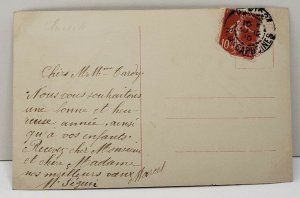 Chèrs Mr Mme Tardy
Nous vous souhaitons
une bonne et heu-
reuse année, ainsi
qu'a vos enfants.
Recevez cher Monsieur
et chère Madame
nos meilleurs vœux Marcel
10